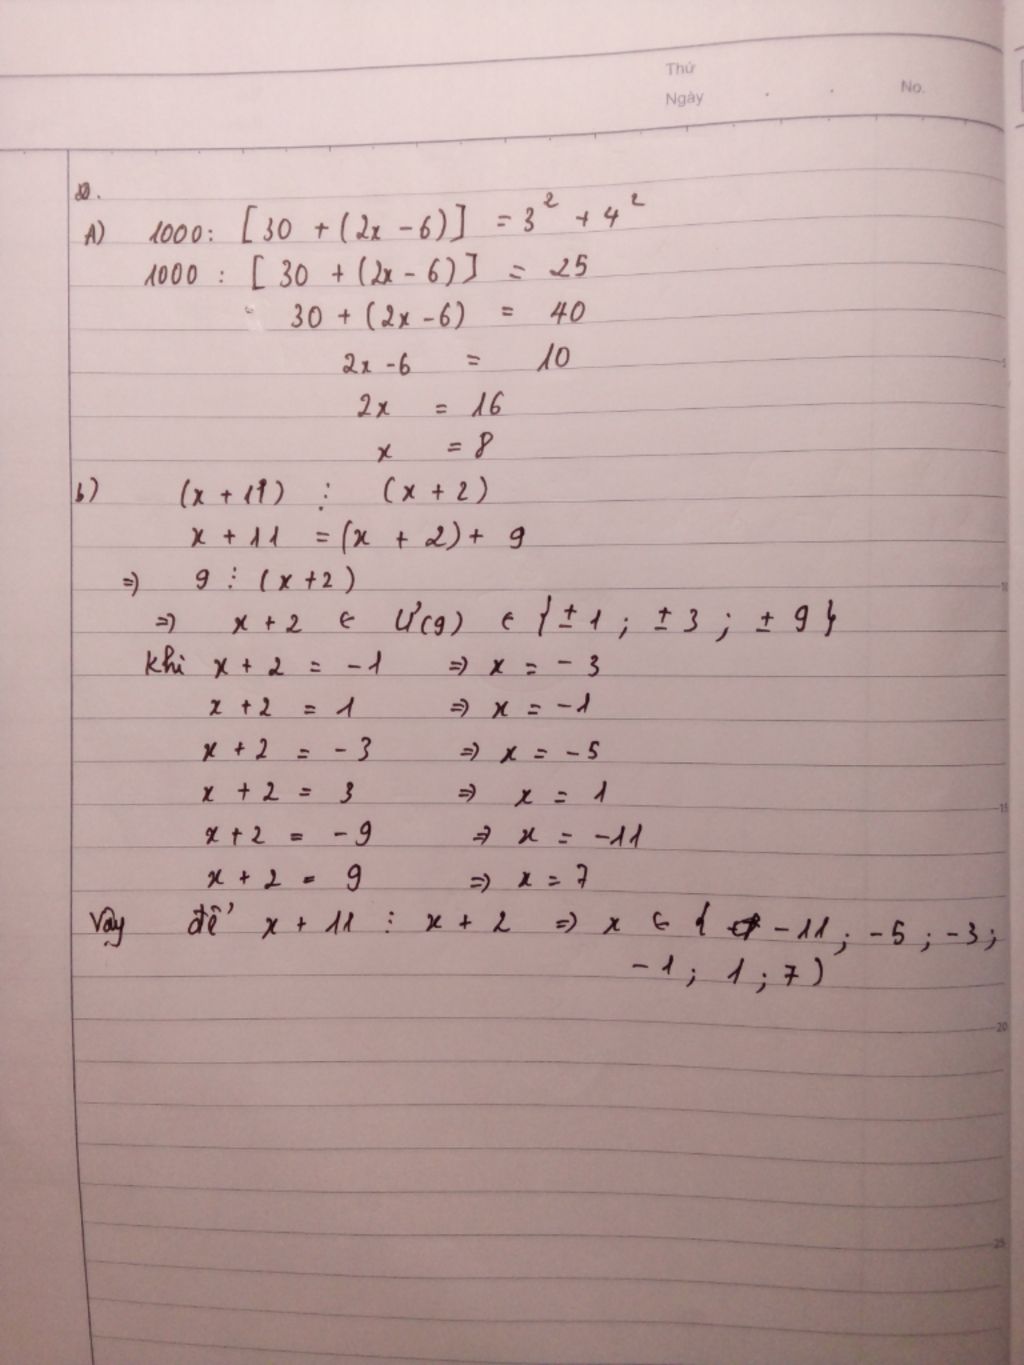 Thứ
Ngày . . No.
A) 1000: [30 + (2x - 6)] = 3² + 4²
1000 : [30 + (2x - 6)] = 25
30 + (2x - 6) = 40
2x - 6 = 10
2x = 16
x = 8
b) (x + 11) ⋮ (x + 2)
x + 11 = (x + 2) + 9
=> 9 ⋮ (x+2)
=> x + 2 ∈ Ư(9) ∈ {±1 ; ±3 ; ±9}
Khi x + 2 = -1 => x = -3
x + 2 = 1 => x = -1
x + 2 = -3 => x = -5
x + 2 = 3 => x = 1
x + 2 = -9 => x = -11
x + 2 = 9 => x = 7
Vậy để x + 11 ⋮ x + 2 => x ∈ { -11 ; -5 ; -3 ;
-1 ; 1 ; 7 )
5
10
15
20
25